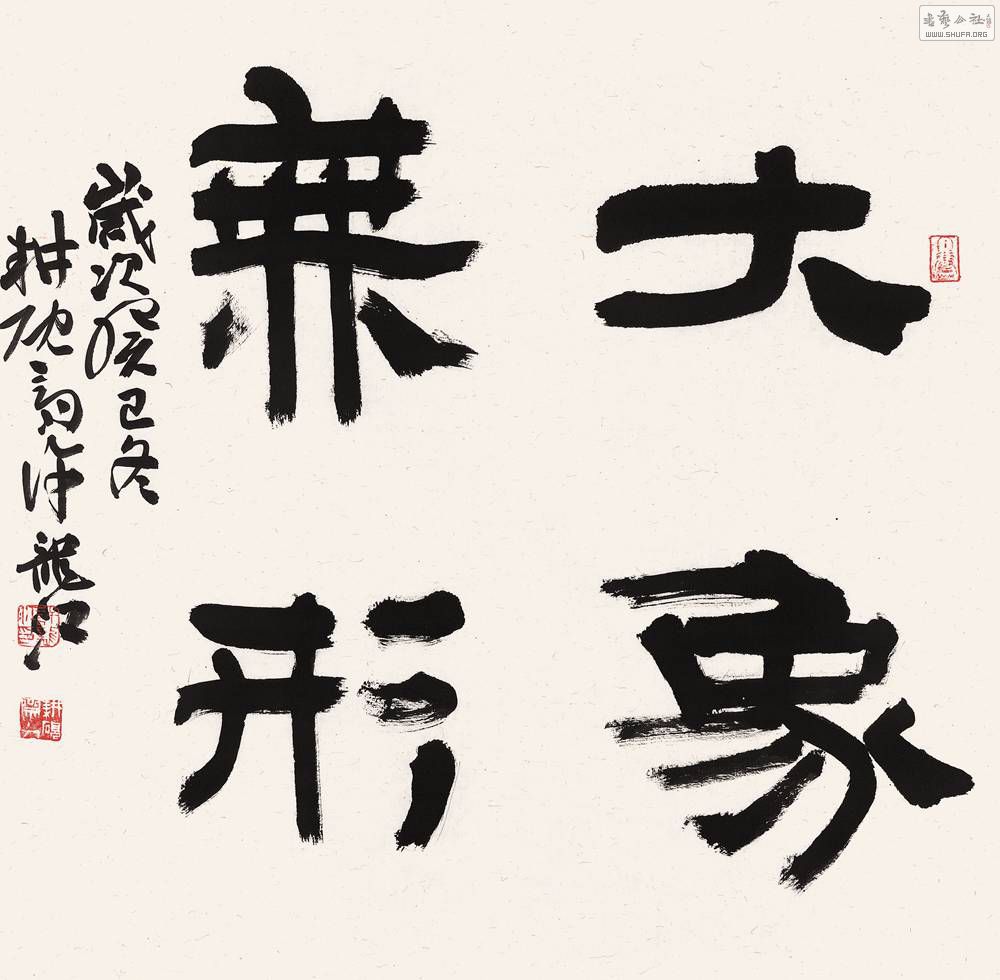 大象
兼形
歲次癸巳冬
耕 龍江
書藝公社
WWW.SHUFA.ORG